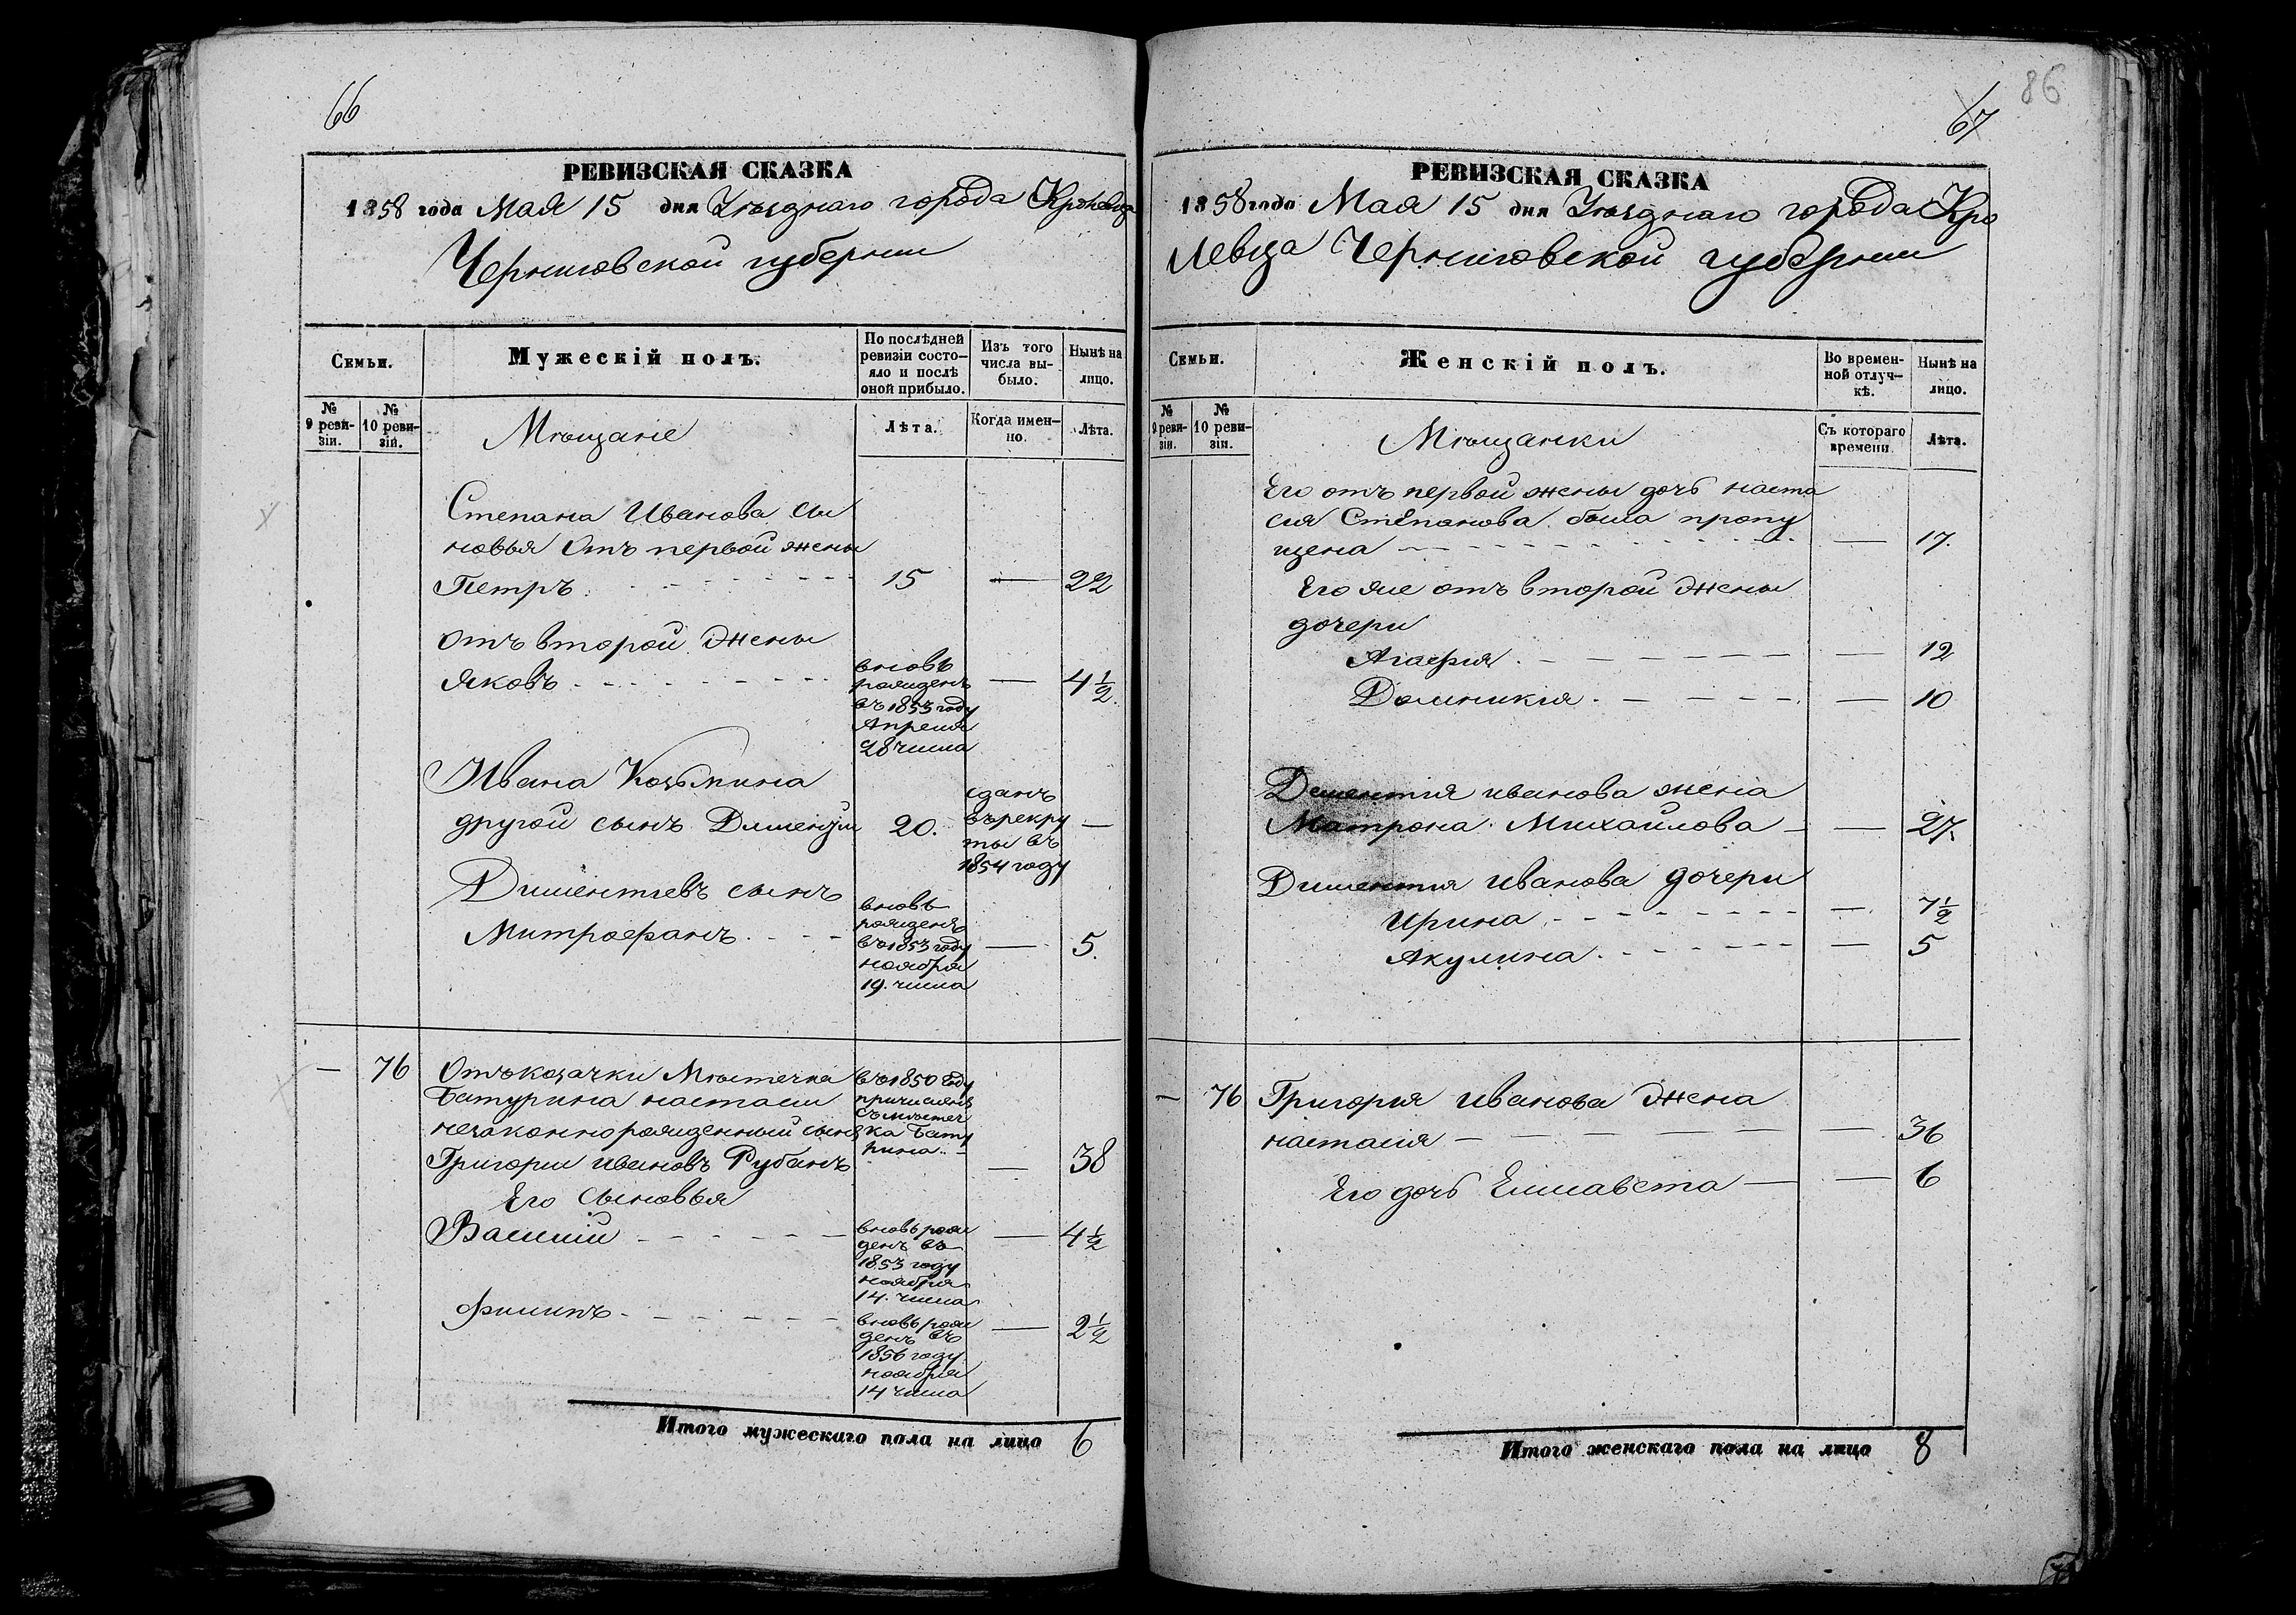 66
РЕВИЗСКАЯ СКАЗКА
1858 года Мая 15 дня Уѣзднаго города Кролевца
Черниговской губернии
Семьи.
Мужескій полъ.
По послѣдней ревизіи состо-
яло и послѣ оной прибыло.
Изъ того числа вы-
было.
Нынѣ на лицо.
№ 9 реви-
зіи.
№ 10 реви-
зіи.
Мѣщане
Лѣта.
Когда имен-
но.
Лѣта.
Степана Иванова сы
новья Отъ первой жены
Петръ 15 — 22
Отъ второй жены
Яковъ — 4½
вновь
рожденъ
въ 1853 году
Апреля
28 числа
Ивана Козьмина
другой сынъ Дементий 20. —
сданъ
въ рекру
ты въ
1854 году
Диментиевъ сынъ
Митрофанъ — 5.
вновь
рожденъ
въ 1853 году
ноября
19. числа
— 76 Отъ козачки Мѣстечка
Батурина настасии
незаконнорожденный сынъ
Григорий Ивановъ Рубанъ — 38
въ 1850 году
причисленъ
съ мѣстеч
ка Бату
рина
Его сыновья
Василий — 4½
вновь рож
денъ въ
1853 году
ноября
14. числа
Филипъ — 2½
вновь рож
денъ въ
1856 году
ноября
14 числа
Итого мужескаго пола на лицо 6
86
67
РЕВИЗСКАЯ СКАЗКА
1858 года Мая 15 дня Уѣзднаго города Кро
левца Черниговской губернии
Семьи.
Женскій полъ.
Во времен-
ной отлуч-
кѣ.
Нынѣ на лицо.
№ 9 реви-
зіи.
№ 10 реви-
зіи.
Мѣщанки
Съ котораго времени
Лѣта.
Его отъ первой жены дочь наста
сия Степанова была пропу
щена — 17.
Его же отъ второй жены
дочери
Агафия — 12
Домникия — 10
Дементия иванова жена
Матрона Михайлова — 27.
Диментия Иванова дочери
Ирина — 7½
Акулина — 5
— 76 Григория Иванова жена
настасия — 36
Его дочь Елисавета — 6
Итого женскаго пола на лицо 8